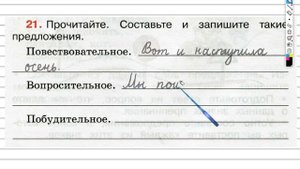 21. Прочитайте. Составьте и запишите такие
предложения.
Повествовательное. Вот и наступила
осень.
Вопросительное. Мы пой
Побудительное.